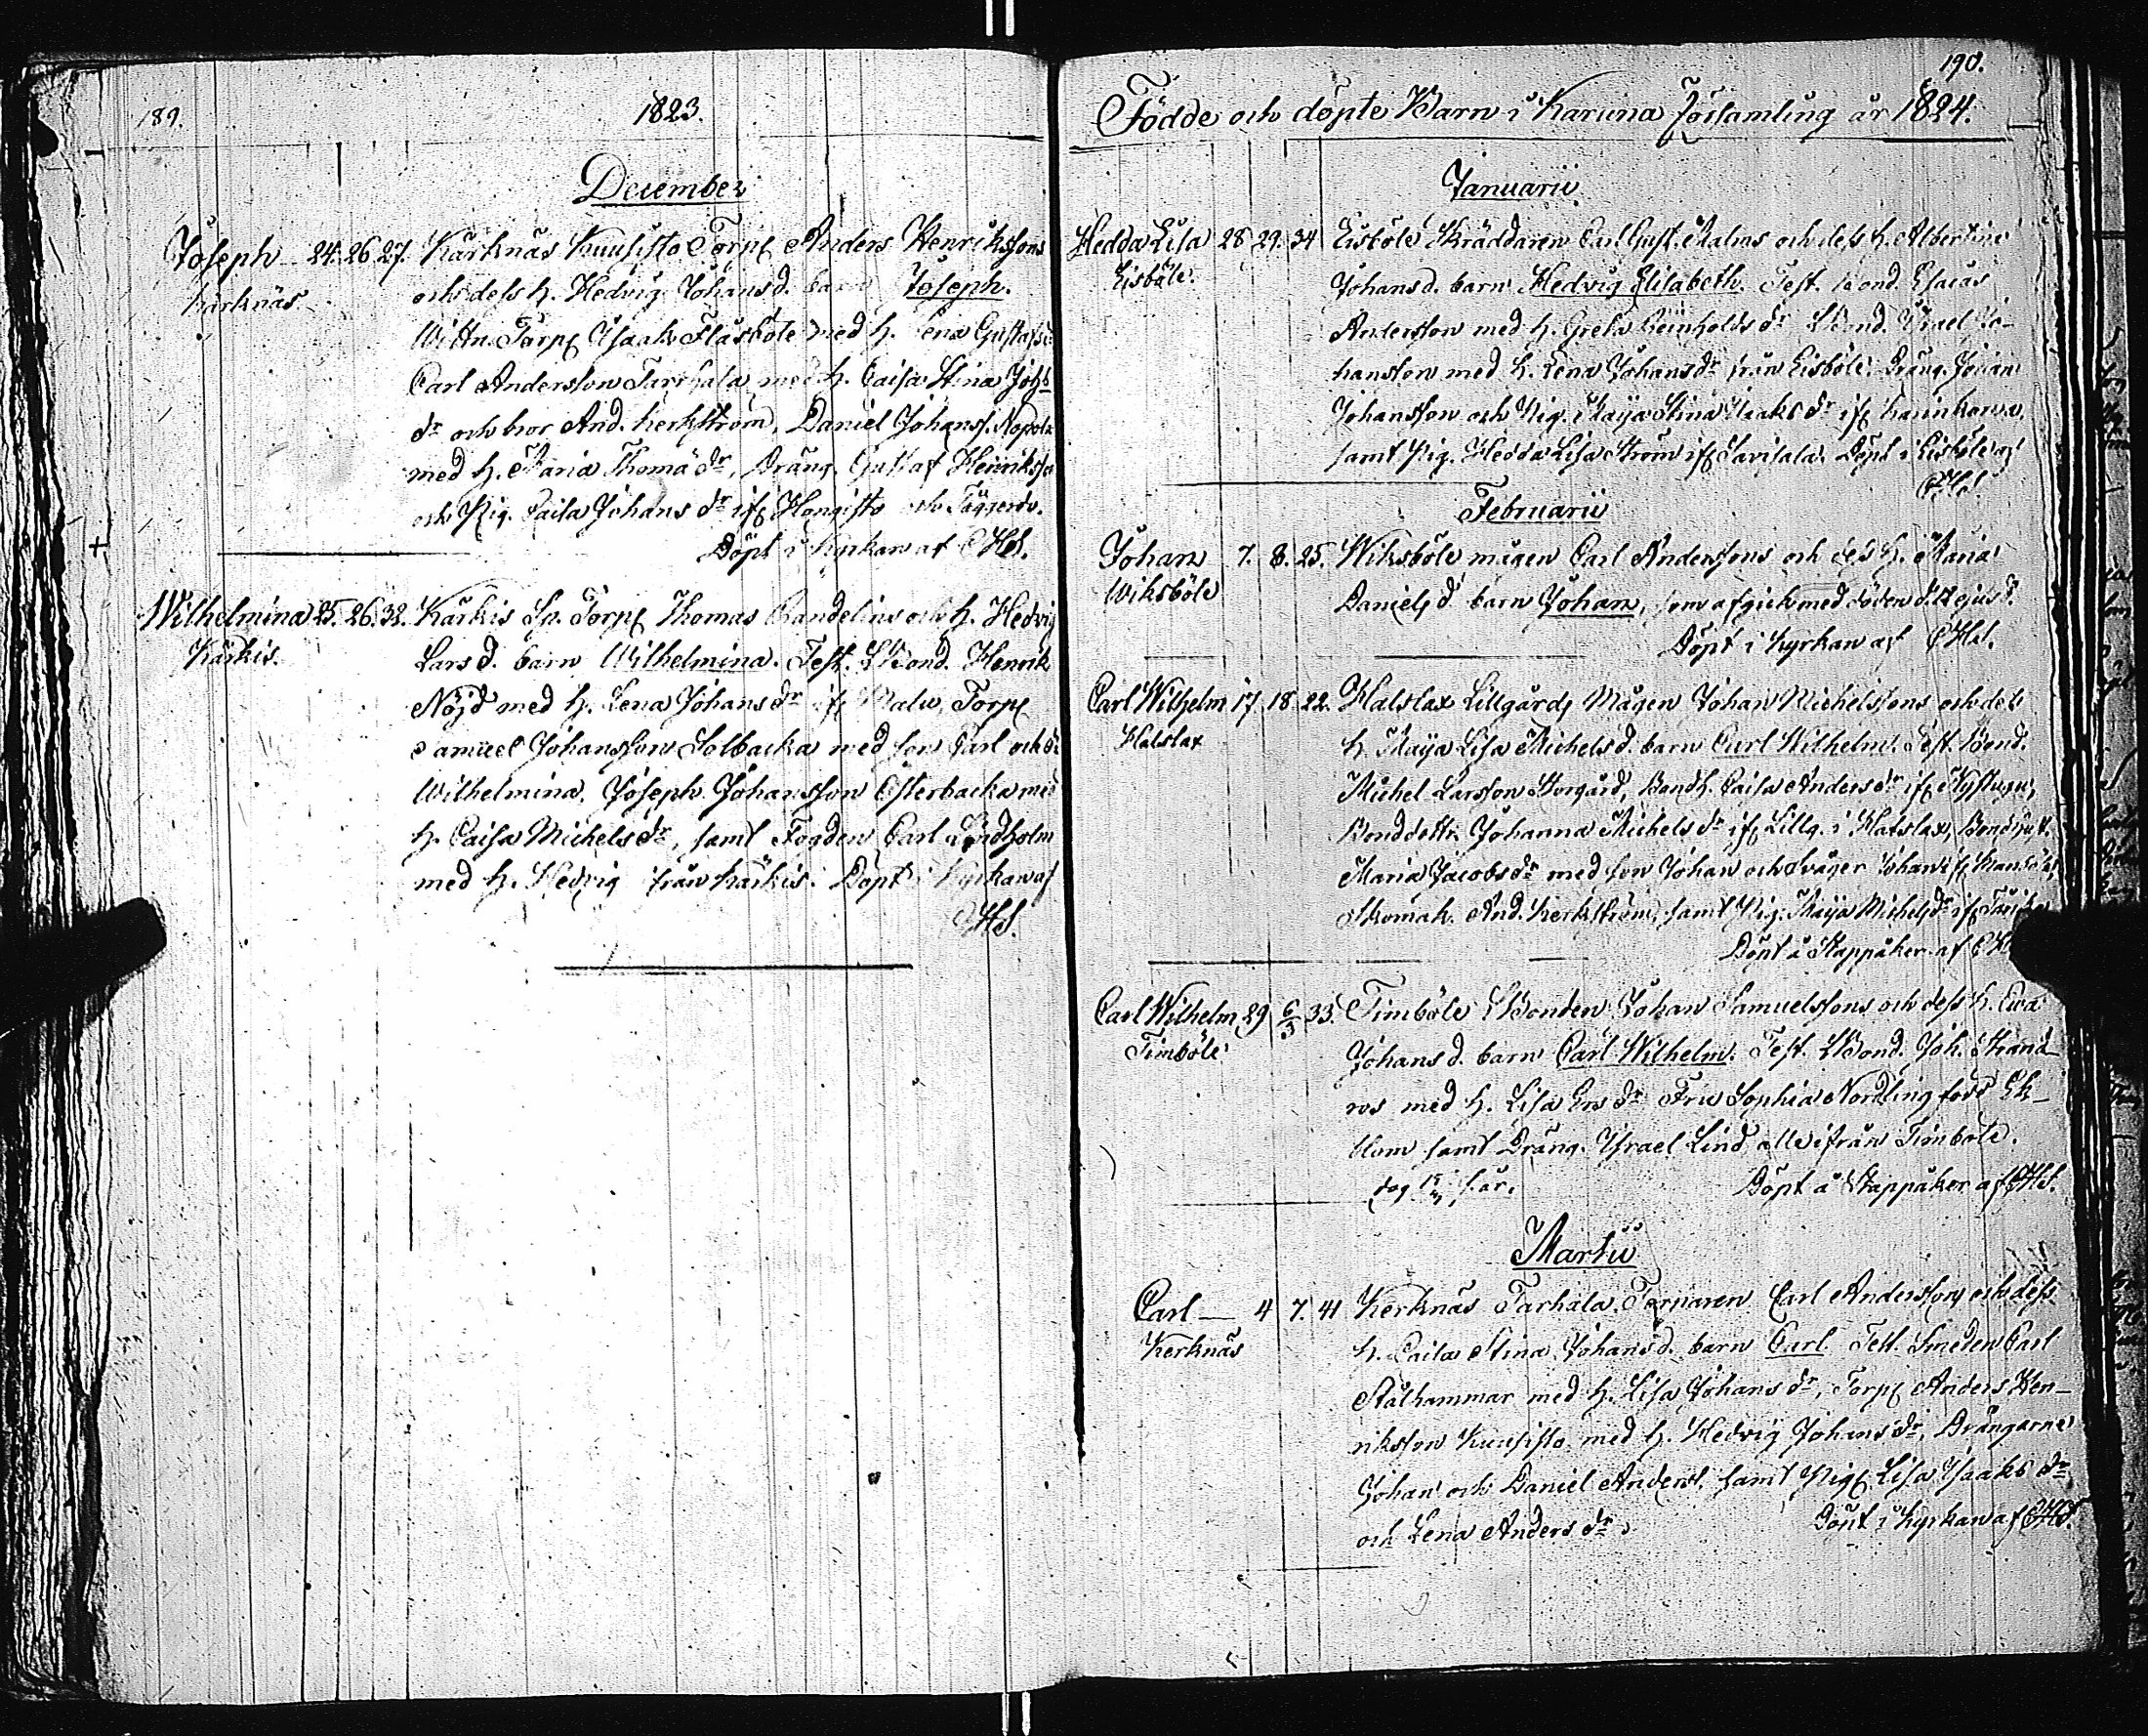 189.
1823.
December
Joseph 24. 26. 27. Kärknäs Kuusisto Torp. Anders Henrikssons
Kärknäs
och dess h. Hedvig Johansd. barn Joseph.
Wittn. Torp. Isaak Flasböle med h. Lena Gustafsd.
Carl Andersson Tarhala med h. Caisa Stina Joh:s
dr och bror And. Kerkström, Daniel Johanss. 
med h. Maria Thomædr, Dräng. Gustaf Henrikss.
och Pig. Caisa Johansdr if. Hongisto och 
Döpt i Kyrkan af CHel.
Wilhelmina 25. 26. 32. Kärkis Sp. Torp. Thomas Candelins och h. Hedvig
Kärkis.
Larsd. barn Wilhelmina. Test. LBond. Henrik
Nöjd med h. Lena Johansdr if. Malu, Torp.
Samuel Johansson Solbacka med son Carl och dr
Wilhelmina, Joseph Johansson Österbacka med
h. Caisa Michelsdr, samt Fogden Carl Lindholm
med h. Hedvig från Kärkis. Döpt i Kyrkan af
CHel.
190.
Födde och döpte Barn i Karuna församling år 1824.
Januarii
Hedda Lisa 28 29. 34 Eisböle Skräddaren Carl Gust. Malms och dess h. Albertina
Eisböle.
Johansd. barn Hedvig Elisabeth. Test. Bond. Esaias
Andersson med h. Greta Reinholdsdr LBond. Israel Jo-
hansson med h. Lena Johansdr från Eisböle. Dräng. Johan
Johansson och Pig. Maja Stina Isaksdr if. Karinkorva,
samt Pig. Hedda Lisa Ström if. Savitala. Döpt i Eisböle af
CHel.
Februarii
Johan 7. 8. 25. Wiksböle mågen Carl Anderssons och dess h. Maria
Wiksböle
Danielsd. barn Johan, som afgick med döden d. 12 ejusd.
Döpt i Kyrkan af CHel.
Carl Wilhelm 17 18 22. Halslax Lillgårds Mågen Johan Michelssons och dess
Halslax
h. Maja Lisa Michelsd. barn Carl Wilhelm. Test. Bond.
Michel Larsson Storgård, Bondh. Caisa Andersdr if. 
Bonddottr. Johanna Michelsdr if. Lillg. i Halslax, 
Maria Jacobsdr med son Johan och svåger Johan if. 
Skomak. And. Kerkström, samt Pig. Maja Michelsdr if. 
Döpt å Stappåker af CHel
Carl Wilhelm 29 6/3 33. Timböle LBonden Johan Samuelssons och dess h. Eva
Timböle
Johansd. barn Carl Wilhelm. Test. LBond. Joh. Strand-
ros med h. Lisa Ersdr Fru Sophia Nordling född Ek-
blom samt Dräng. Israel Lind alle ifrån Timböle.
Döpt å Stappåker af CHel.
Martii
Carl 4 7. 41 Kerknäs Tarhala Torparen Carl Anderssons och dess
Kerknäs
h. Caisa Stina Johansd. barn Carl. Test. Smeden Carl
Stålhammar med h. Lisa Johansdr, Torp. Anders Hen-
riksson Kuusisto med h. Hedvig Johansdr, Drängarne
Johan och Daniel Anderss. samt Pig. Lisa Isaaksdr
och Lena Andersdr. Döpt i Kyrkan af CHel.